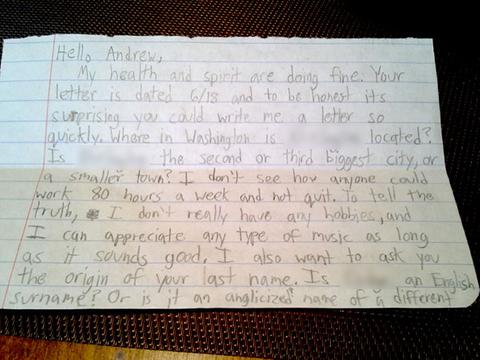 Hello Andrew,
My health and spirit are doing fine. Your
letter is dated 6/18 and to be honest its
surprising you could write me a letter so
quickly. Where in Washington is located?
Is the second or third biggest city, or
a smaller town? I don't see how anyone could
work 80 hours a week and not quit. To tell the
truth, I don't really have any hobbies, and
I can appreciate any type of music as long
as it sounds good. I also want to ask you
the origin of your last name. Is an English
surname? Or is it an anglicized name of a different